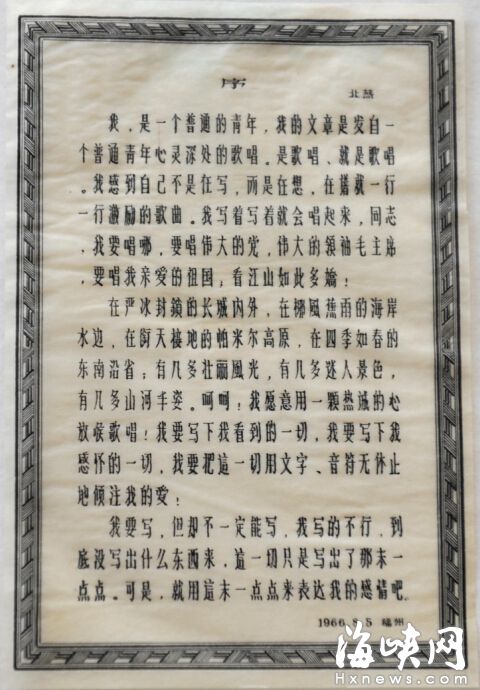 序
北燕
我，是一个普通的青年，我的文章是发自一
个普通青年心灵深处的歌唱。是歌唱、就是歌唱
。我感到自己不是在写，而是在想，在搭就一行
一行激励的歌曲。我写着写着就会唱起来，同志
、我要唱哪，要唱伟大的党，伟大的领袖毛主席
，要唱我亲爱的祖国；看江山如此多嬌！
在严冰封鎖的长城内外，在椰風蕉雨的海岸
水边，在阿天接地的帕米尔高原，在四季如春的
东南沿省；有几多壮丽風光，有几多迷人景色，
有几多山河手姿。呵呵！我愿意用一颗热诚的心
放喉歌唱！我要写下我看到的一切，我要写下我
感怀的一切，我要把這一切用文字、音符无休止
地倾注我的爱！
我要写，但却不一定能写，我写的不行，到
底没写出什么东西来，這一切只是写出了那末一
点点。可是，就用這末一点点来表达我的感情吧。
1966 5 福州
海峡网
Hxnews.com